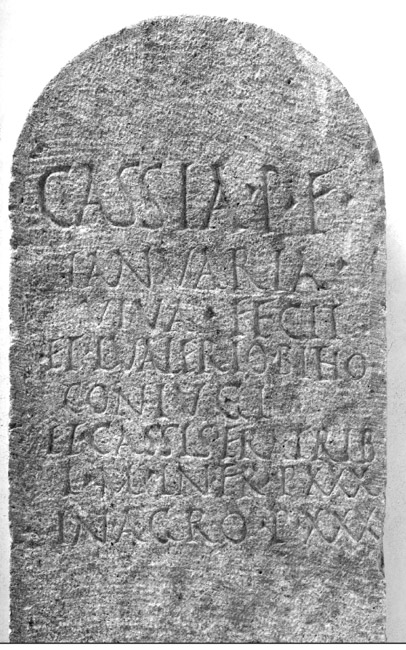 CASSIA·P·F·
IANVARIA·
VIVA·FECIT
ET·L·VALERIO·BITHO
CONIVGI
ET·CASSIS
L·M·IN·FR·P·XXX
IN·AGRO·P·XXX